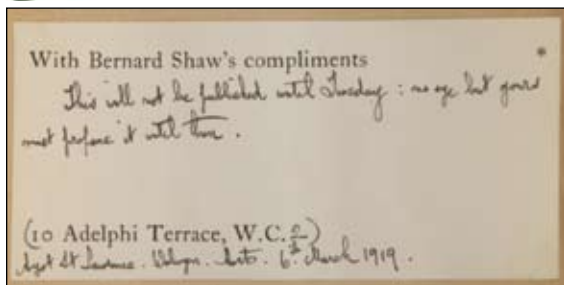 With Bernard Shaw's compliments
This will not be published until Tuesday: no eye but yours
must profane it until then.
(10 Adelphi Terrace, W.C.2)
Ayot St Lawrence. Welwyn. Herts. 6th March 1919.